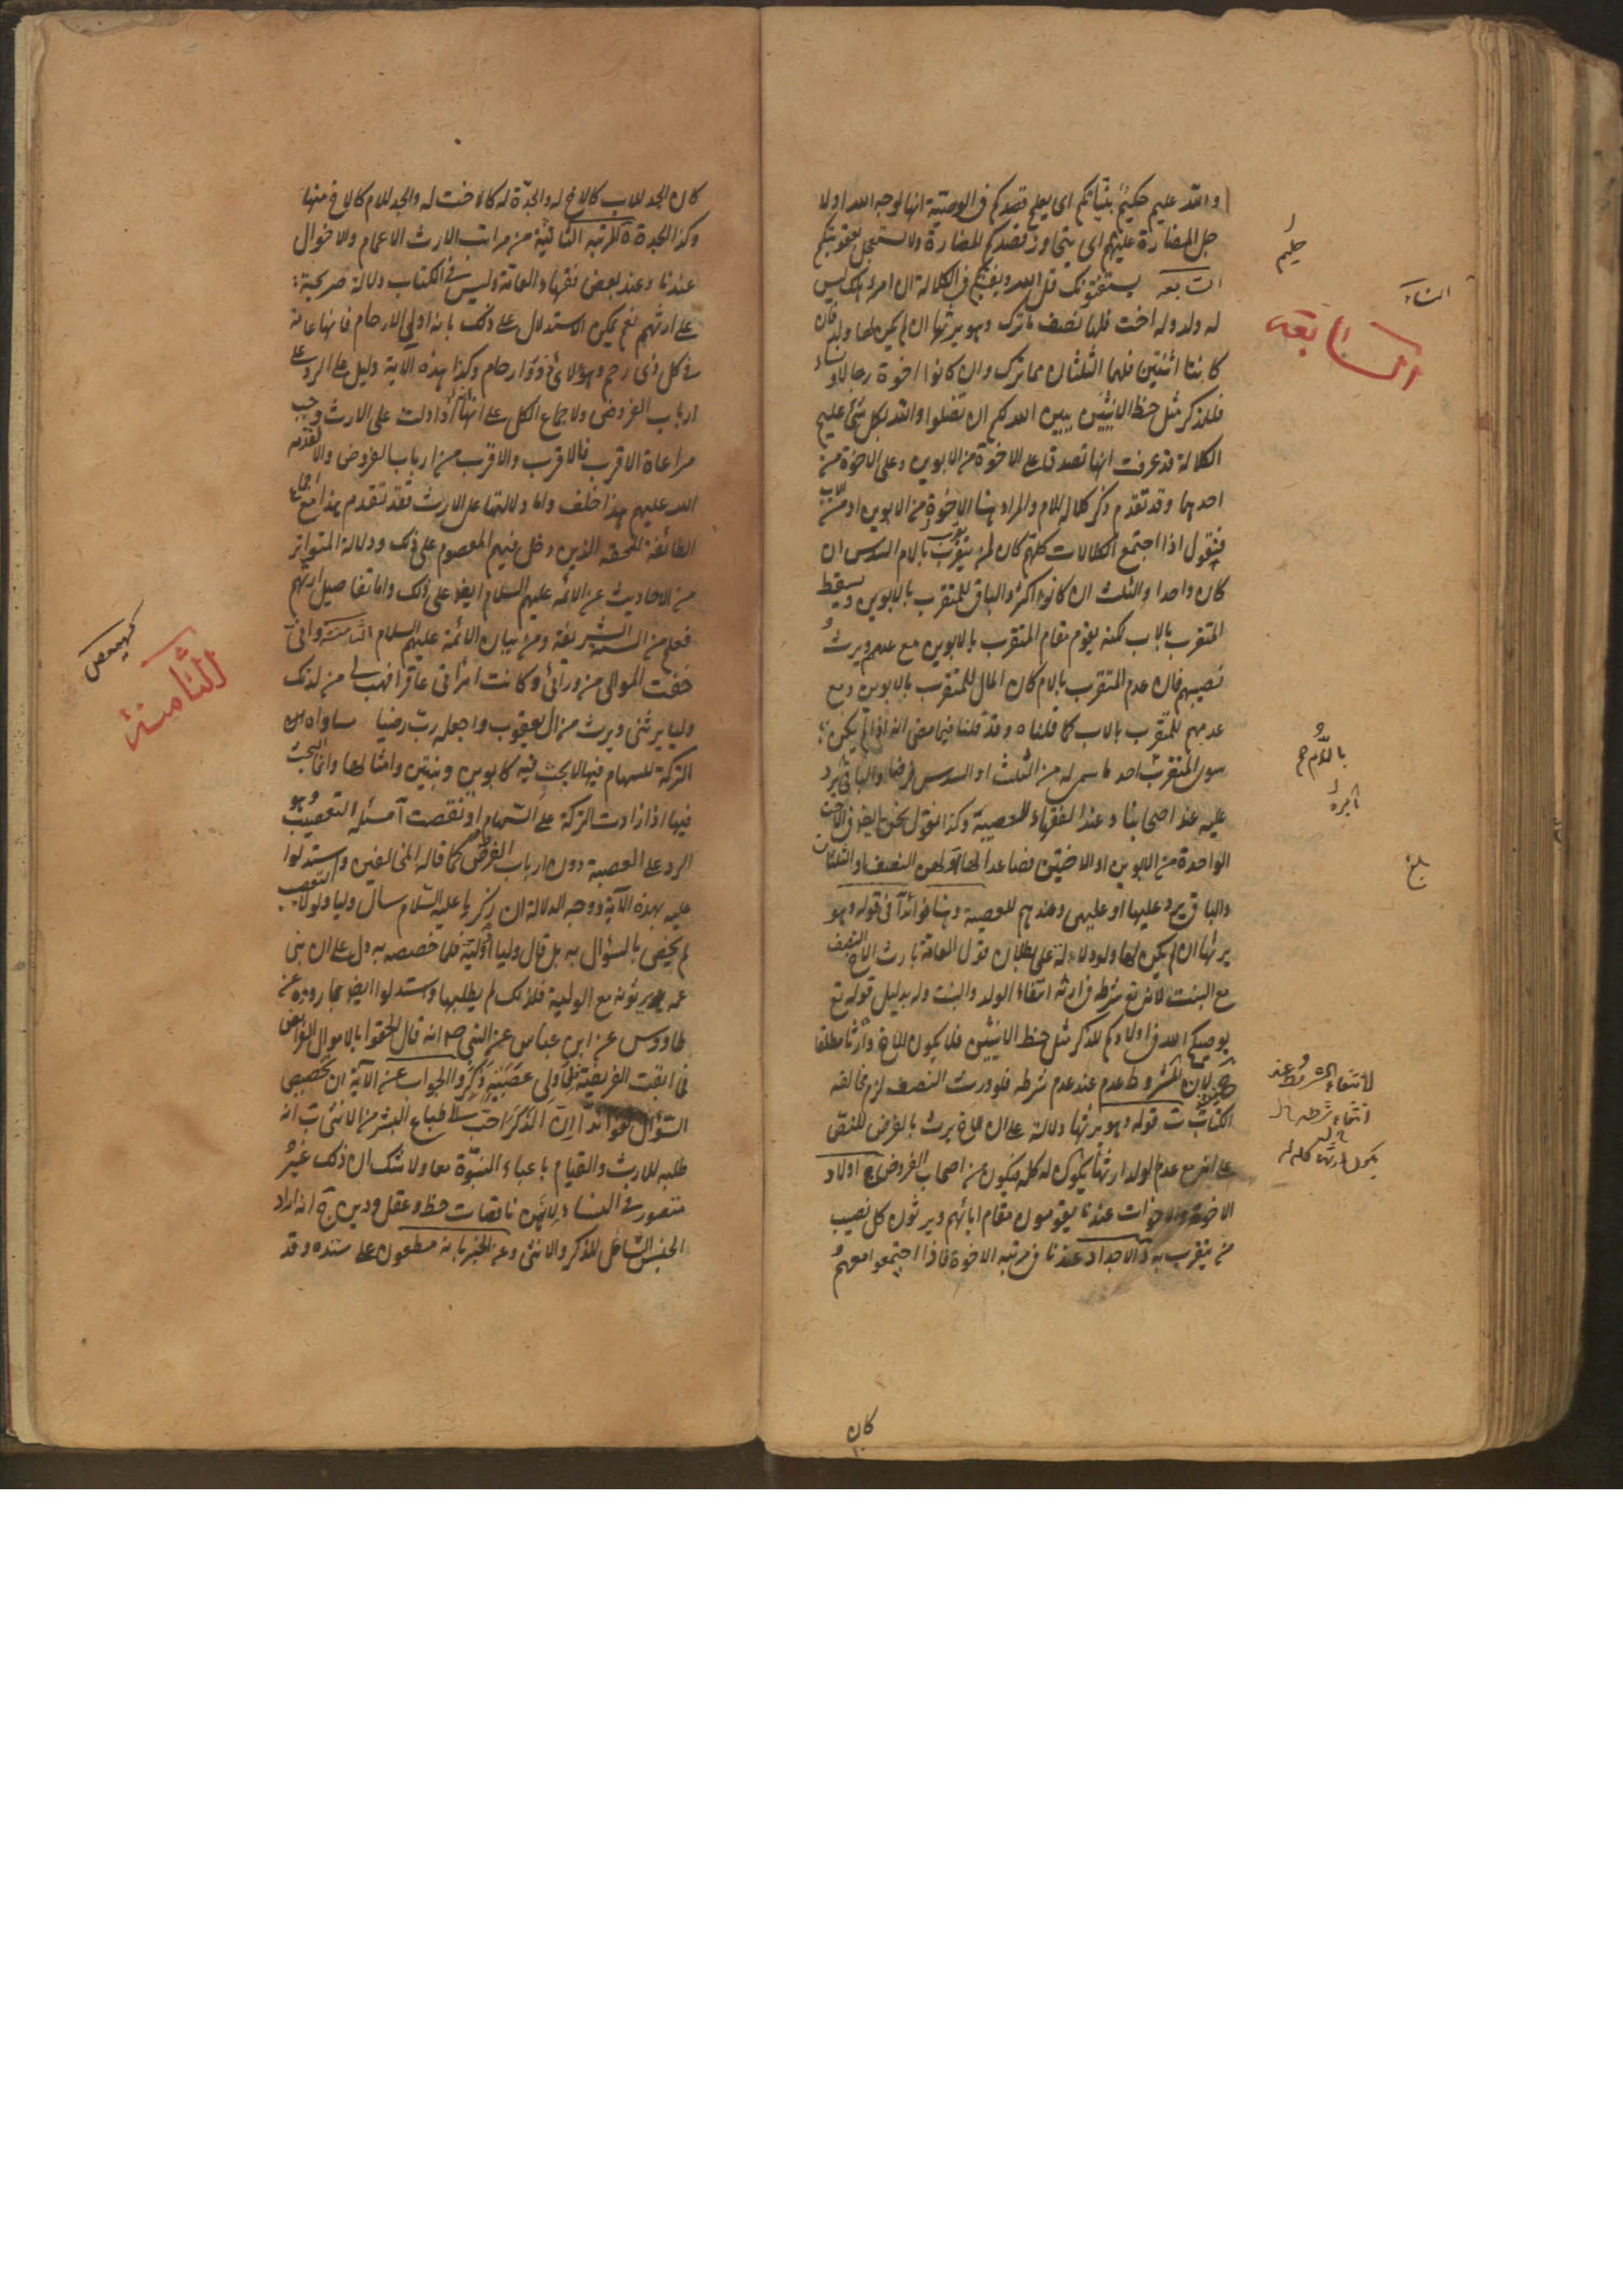 والله عليم حكيم بنياتكم اى يعلم قصدكم فى الوصية انها لوجه الله او لا
جل المضارة عليهم اى يتجاوز قصدكم المضارة ولا يستعجل بعقوبتكم
السابعة يستفتونك قل الله يفتيكم فى الكلالة ان امرؤ هلك ليس
له ولد وله اخت فلها نصف ما ترك وهو يرثها ان لم يكن لها ولد فان
كانتا اثنتين فلهما الثلثان مما ترك وان كانوا اخوة رجالا ونساء
فللذكر مثل حظ الانثيين يبين الله لكم ان تضلوا والله بكل شئ عليم
الكلالة قد عرفت انها تصدق على الاخوة من الابوين وعلى الاخوة من
احدهما وقد تقدم ذكر كلالة الام والمراد هنا الاخوة من الابوين او من الاب
فنقول اذا اجتمع الكلالات كلهم كان لمن يتقرب بالام السدس ان
كان واحدا والثلث ان كانوا اكثر والباقى للمتقرب بالابوين ويسقط
المتقرب بالاب لكنه يقوم مقام المتقرب بالابوين مع عدمهم ويرث
نصيبهم فان عدم المتقرب بالام كان المال للمتقرب بالابوين ومع
عدمهم للمتقرب بالاب كما قلناه وقد قلنا فيما مضى انه اذا لم يكن
سوى المتقرب احد ما سمى له من الثلث او السدس فرضا والباقى يرد
عليه عند اصحابنا وعند الفقهاء للعصبة وكذا نقول نحن ايضا فى الاخت
الواحدة من الابوين او الاختين فصاعدا لها او لهن النصف او الثلثان
والباقى يرد عليها او عليهن وعندهم للعصبة وهنا فوائد آ فى قوله وهو
يرثها ان لم يكن لها ولد دلالة على بطلان قول العامة بارث الاخ النصف
مع البنت لانه تع شرط فى ارثه انتفاء الولد والبنت ولد بدليل قوله تع
يوصيكم الله فى اولادكم للذكر مثل حظ الانثيين فلا يكون الاخ وارثا مطلقا
لان المشروط عدم عند عدم شرطه فلو ورث النصف لزم مخالفة
الكتاب ب قوله وهو يرثها دلالة على ان الاخ يرث بالفرض للنص
على انه مع عدم الولد ارثها يكون له كله فيكون من اصحاب الفروض ج اولاد
الاخوة والاخوات عندنا يقومون مقام ابائهم ويرثون كل نصيب
من يتقرب به د الاجداد عندنا فى مرتبة الاخوة فاذا اجتمعوا معهم
كان
حليم
النساء
السابعة
بالام ح
بلغ
لانتفاء المشروط عند
انتفاء شرطه
يكون ارثها كله له
كان الجد للاب كالاخ له والجدة له كالاخت له والجد للام كالاخ منها
وكذا الجدة ة المرتبة الثانية من مراتب الارث الاعمام والاخوال
عندنا وعند بعض فقهاء العامة وليس فى الكتاب دلالة صريحة
على ارثهم نعم يمكن الاستدلال على ذلك باية اولى الارحام فانها عامة
فى كل ذى رحم وهؤلاء ذووا ارحام وكذا هذه الاية دليل على الرد على
ارباب الفروض والاجماع الكل على انها اذا دلت على الارث وجب
مراعاة الاقرب فالاقرب والاقرب من ارباب الفروض والا لتقدم
الله عليهم هذا خلف واما دلالتها على الارث فقد تقدم هذا مع اجماع
الطائفة المحقة الذين دخل فيهم المعصوم على ذلك ودلالة المتواتر
من الاحاديث عن الائمة عليهم السلام ايضا على ذلك واما تفاصيل ارثهم
فعلم من السنة الشريفة ومن بيان الائمة عليهم السلام الثامنة وانى
خفت الموالى من ورائى وكانت امرأتى عاقرا فهب لى من لدنك
وليا يرثنى ويرث من ال يعقوب واجعله رب رضيا مساواة
التركة للسهام فيها لا بحث فيه كابوين وبنتين وامثالها وانما البحث
فيها اذا زادت التركة على السهام او نقصت آ مسئلة التعصيب وهو
الرد على العصبة دون ارباب الفرض كما قاله المخالفين واستدلوا
عليه بهذه الآية ووجه الدلالة ان زكريا عليه السلام سأل وليا ولولا التعصيب
لم يخص بالسؤال به بل قال وليا او ولية فلما خصصه به دل على ان بنى
عمه يرثونه مع الولية فلذلك لم يطلبها واستدلوا ايضا بما رووه عن
طاووس عن ابن عباس عن النبى ص انه قال الحقوا بالاموال الفرائض
فما ابقت الفريضة فلاولى عصبة ذكر والجواب عن الآية ان تخصيص
السؤال لفوائد آ ان الذكر احب الى طباع البشر من الانثى ب انه
طلبه للارث والقيام باعباء النبوة معا ولا شك ان ذلك غير
متصور فى النساء لانهن ناقصات حظ وعقل ودين ج انه اراد
الجنس الشامل للذكر والانثى وعن الخبر بانه مطعون على سنده وقد
كهيعص
الثامنة